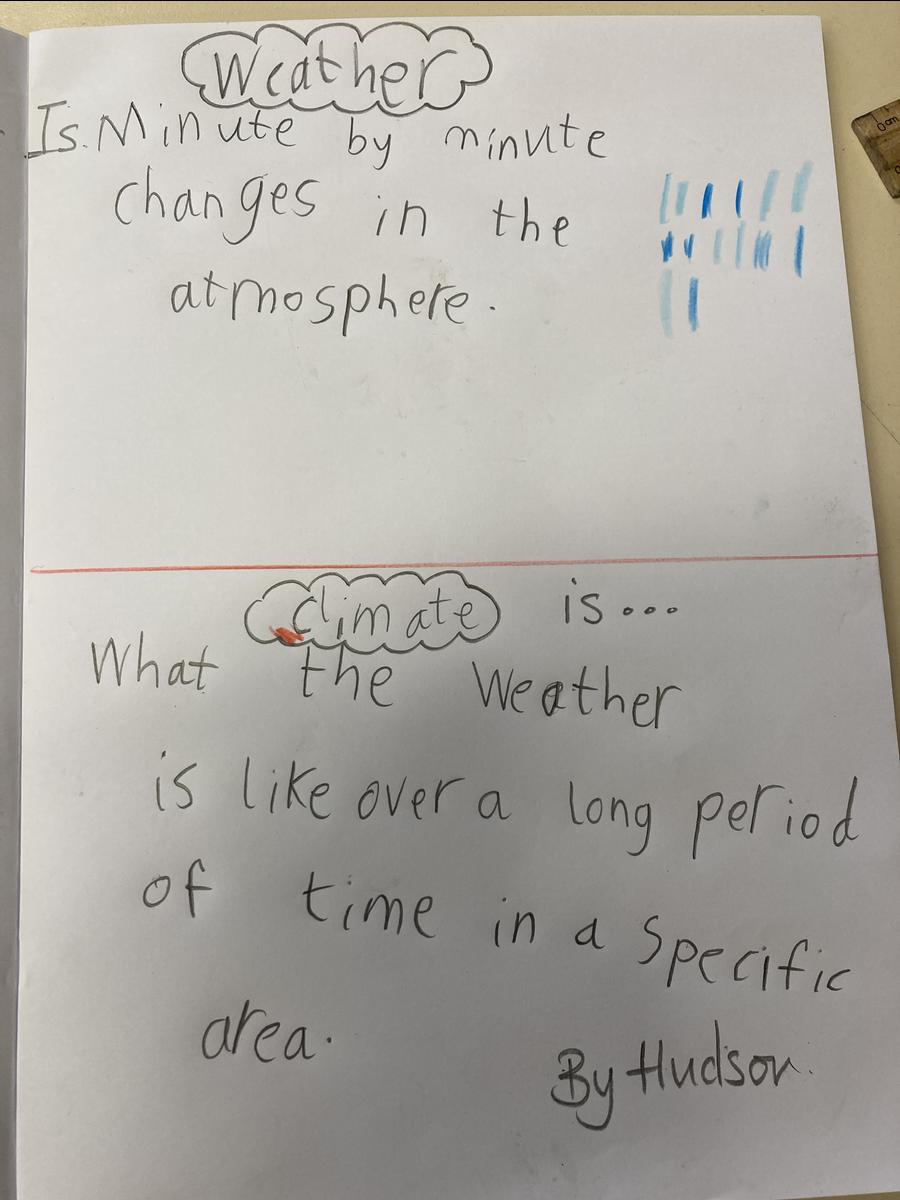 Weather
Is Minute by minute
changes in the
atmosphere.
climate is...
What the Weather
is like over a long period
of time in a specific
area.
By Hudson.
0cm